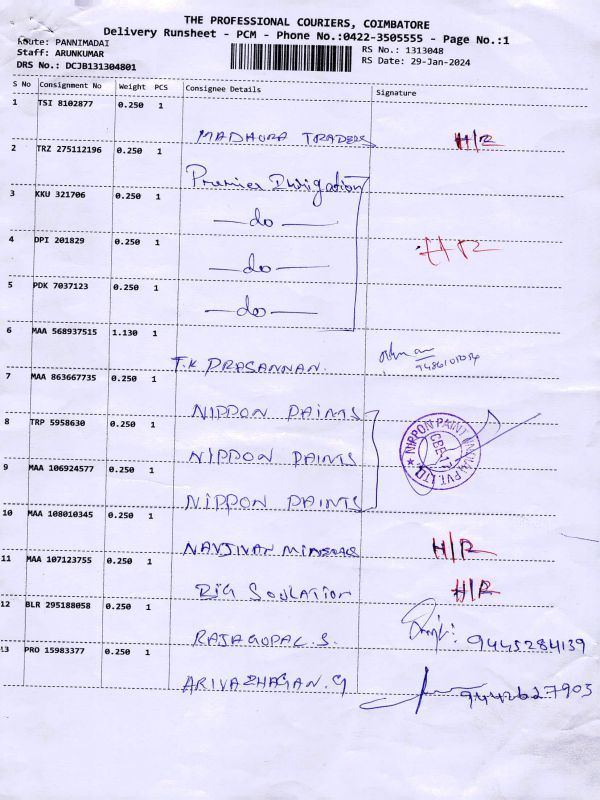 THE PROFESSIONAL COURIERS, COIMBATORE
Delivery Runsheet - PCM - Phone No.:0422-3505555 - Page No.:1
Route: PANNIMADAI
Staff: ARUNKUMAR
DRS No.: DCJB131304801
RS No.: 1313048
RS Date: 29-Jan-2024
S No Consignment No Weight PCS Consignee Details Signature
1 TSI 8102877 0.250 1
MADHURA TRADERS H/R
2 TRZ 275112196 0.250 1
Premier Irrigation
3 KKU 321706 0.250 1
—do—
4 DPI 201829 0.250 1 H/R
—do—
5 PDK 7037123 0.250 1
—do—
6 MAA 568937515 1.130 1
T.K. PRASANNAN.
7 MAA 863667735 0.250 1
NIPPON PAINTS
8 TRP 5958630 0.250 1
NIPPON PAINTS
9 MAA 106924577 0.250 1
NIPPON PAINTS
NIPPON PAINT PVT. LTD.
CBE-17
10 MAA 108010345 0.250 1
NAVJIVAN MINERALS H/R
11 MAA 107123755 0.250 1
H/R
12 BLR 295188058 0.250 1
RAJAGOPAL.S. 9445284139
13 PRO 15983377 0.250 1
ARIVAZHAGAN.G 9442627905